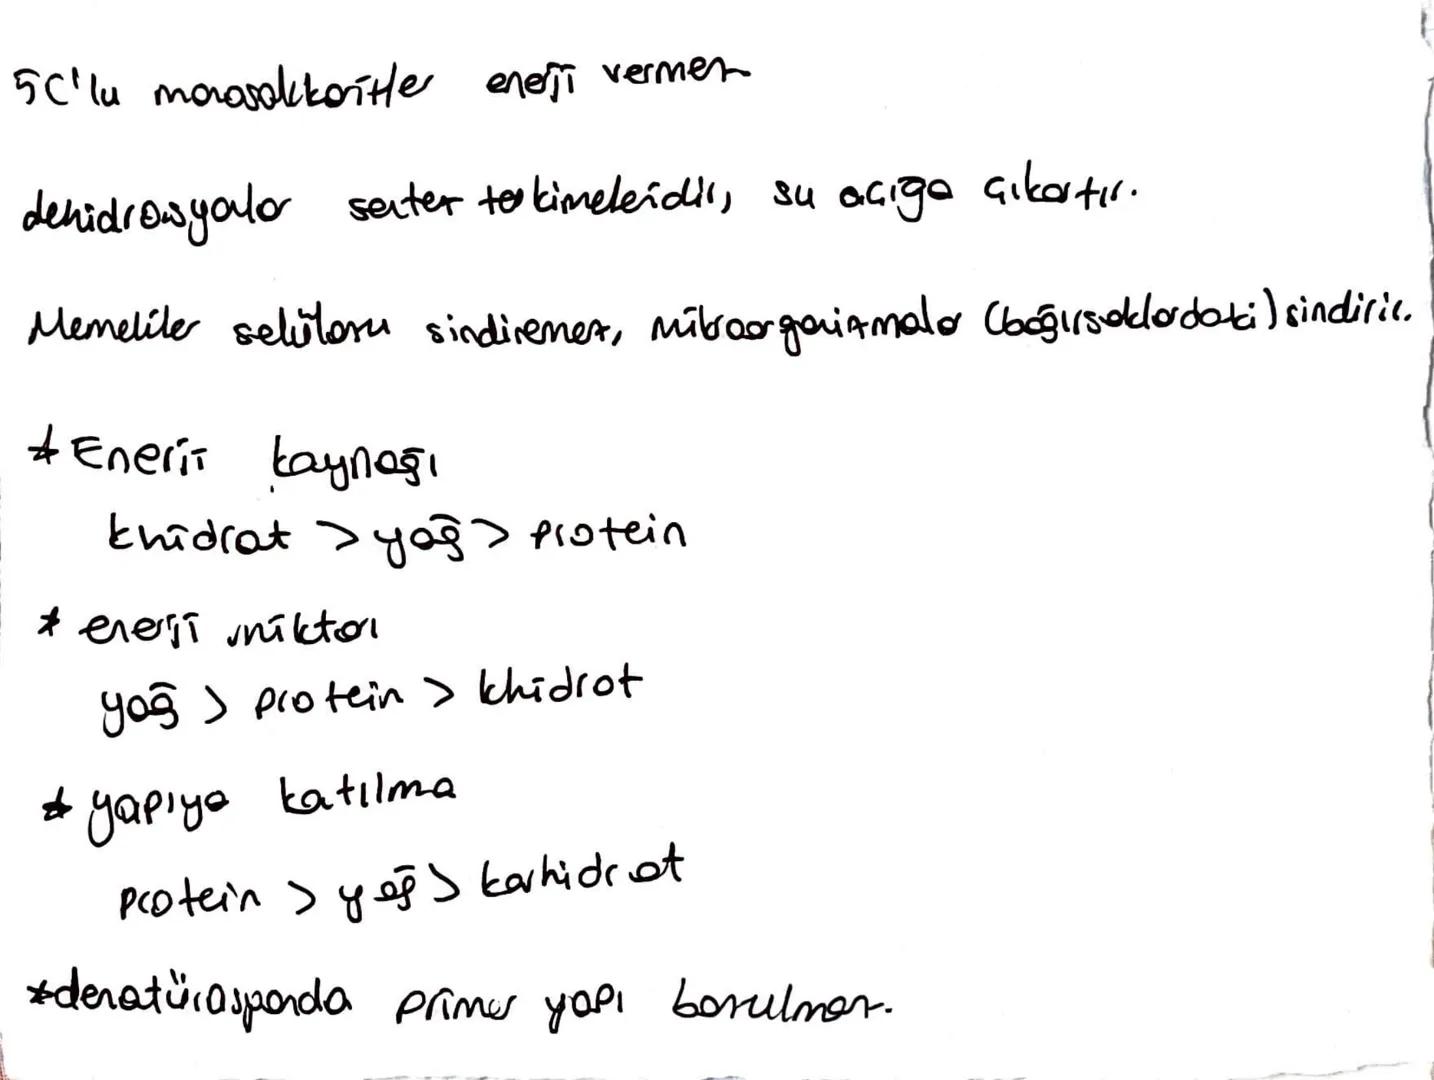 5C'lu monosakkaritler enerji vermez
dehidrasyonlar sentez tepkimeleridir, su açığa çıkartır.
Memeliler selülozu sindiremez, mikroorganizmalar (bağırsaklardaki) sindirir.
* Enerji kaynağı
khidrat > yağ > protein
* enerji miktarı
yağ > protein > khidrat
* yapıya katılma
protein > yağ > karhidrat
*denatürasyonda primer yapı bozulmaz.